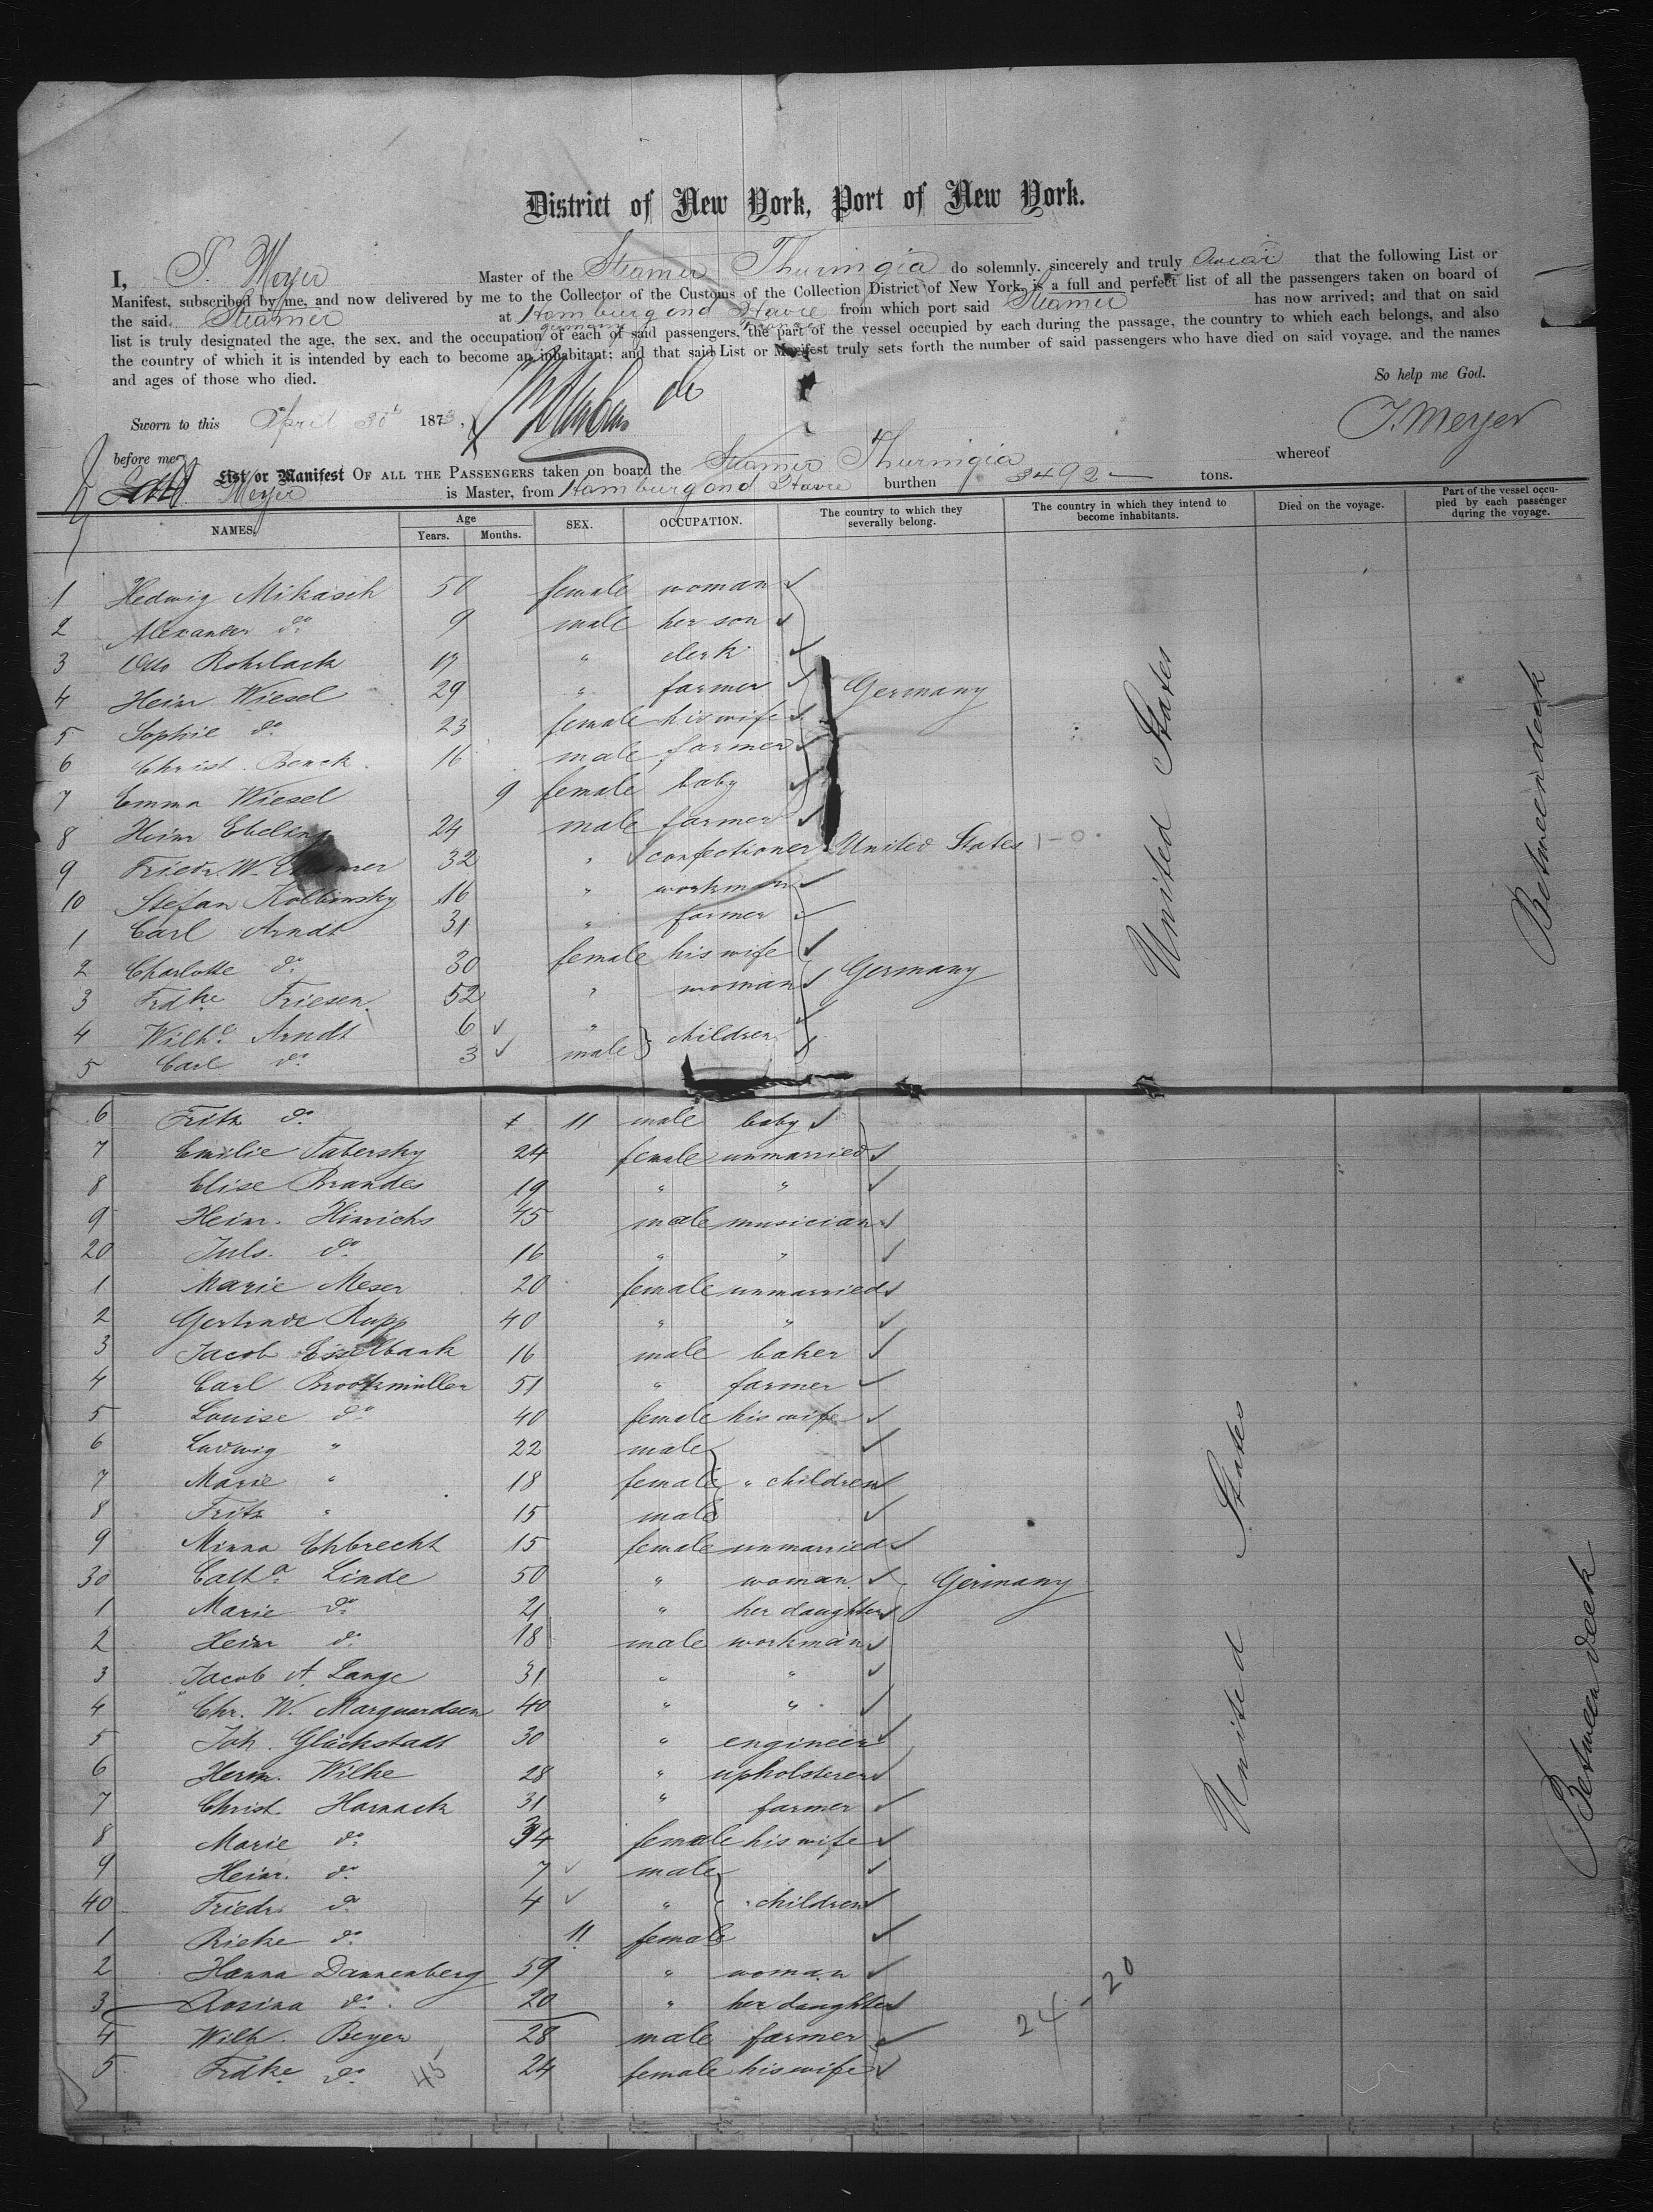 District of New York, Port of New York.
I, J. Meyer Master of the Steamer Thuringia do solemnly, sincerely and truly swear that the following List or
Manifest, subscribed by me, and now delivered by me to the Collector of the Customs of the Collection District of New York, is a full and perfect list of all the passengers taken on board of
the said Steamer at Hamburg and Havre from which port said Steamer has now arrived; and that on said
list is truly designated the age, the sex, and the occupation of each of said passengers, the part of the vessel occupied by each during the passage, the country to which each belongs, and also
the country of which it is intended by each to become an inhabitant; and that said List or Manifest truly sets forth the number of said passengers who have died on said voyage, and the names
and ages of those who died.
So help me God.
Sworn to this April 30th 1873,
J. Meyer
before me
List or Manifest OF ALL THE PASSENGERS taken on board the Steamer Thuringia whereof
Meyer is Master, from Hamburg and Havre burthen 3492 tons.
NAMES. Age Years. Months. SEX. OCCUPATION. The country to which they severally belong. The country in which they intend to become inhabitants. Died on the voyage. Part of the vessel occupied by each passenger during the voyage.
1 Hedwig Mikasch 50 female woman
2 Alexander do 9 male her son
3 Otto Rohrlack 17 " clerk
4 Heinr. Wiesel 29 " farmer Germany
5 Sophie do 23 female his wife
6 Christ. Benek 16 male farmer
7 Emma Wiesel 9 female baby
8 Heinr Ebeling 24 male farmer
9 Friedr. W. 32 " confectioner United States 1-0
10 Stefan Kolbinsky 16 " workman
1 Carl Arndt 31 " farmer
2 Charlotte do 30 female his wife
3 Frdke Friesen 52 " woman Germany
4 Wilhe Arndt 6 " children
5 Carl do 3 male
United States
Between deck
6 Fritz do 11 male baby
7 Emilie Tabersky 24 female unmarried
8 Elise Brandes 19 " "
9 Heinr. Hinrichs 45 male musician
20 Juls. do 16 " "
1 Marie Meser 20 female unmarried
2 Gertrude Rupp 40 " "
3 Jacob Esselbank 16 male baker
4 Carl Brookmüller 51 " farmer
5 Louise do 40 female his wife
6 Ludwig " 22 male
7 Marie " 18 female " children
8 Fritz " 15 male
9 Minna Ehbrecht 15 female unmarried
30 Catha Linde 50 " woman Germany
1 Marie do 21 " her daughter
2 Heinr do 18 male workman
3 Jacob A. Lange 31 " "
4 Chr. W. Marquardsen 40 " "
5 Joh. Glückstadt 30 " engineer
6 Herm. Wilke 28 " upholsterer
7 Christ. Harnack 31 " farmer
8 Marie do 34 female his wife
9 Heinr. do 7 male
40 Friedr. do 4 " children
1 Rieke do 11 female
2 Hanna Dannenberg 59 " woman
3 Rosina do 20 " her daughter
4 Wilh. Beyer 28 male farmer
5 Frdke do 45 24 female his wife
24 - 20
United States
Between deck